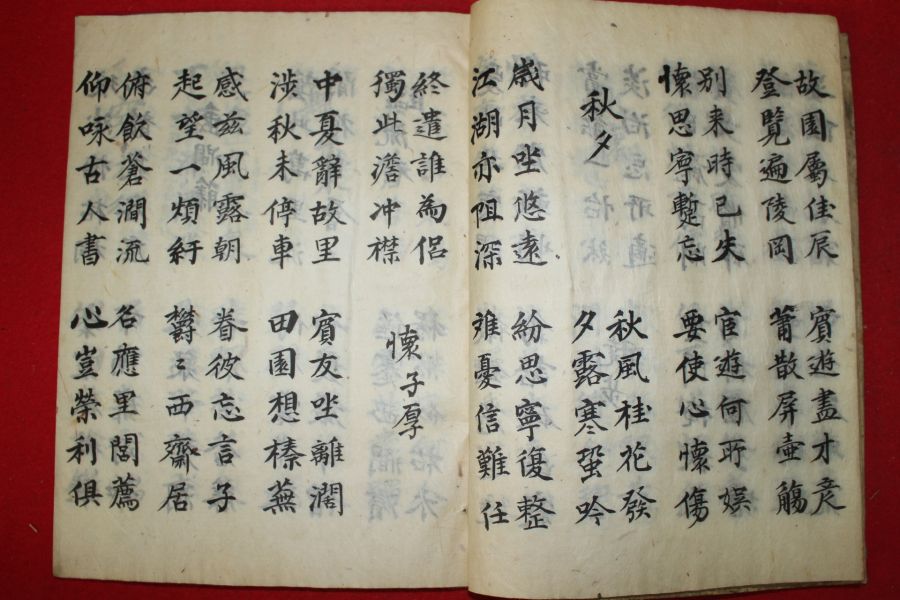 故園屬佳辰
登覽遍陵岡
賓遊盡才彦
莆散屏壺觴
别来時已失
懷思寧蹔忘
宦遊何所娯
要使心懷傷
秋夕
秋風桂花發
夕露寒蛩吟
歲月坐悠遠
江湖亦阻深
紛思寧復整
难憂信難任
終遣誰為侣
獨此澹冲襟
懷子厚
中夏辭故里
涉秋未停車
賓友坐離濶
田園想榛蕪
感兹風露朝
起望一煩紆
眷彼忘言子
欝〻西齋居
俯飲蒼澗流
仰咏古人書
名應里閭薦
心豈榮利俱